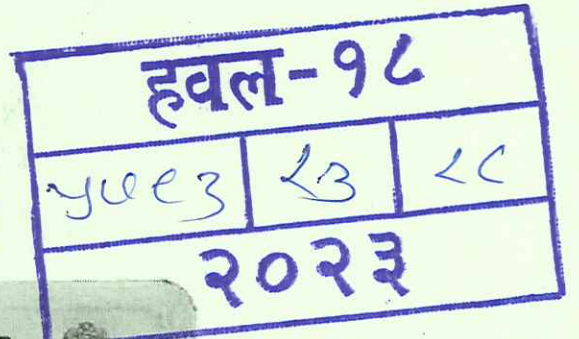 हवल-१८
५७९३ २३ २८
२०२३